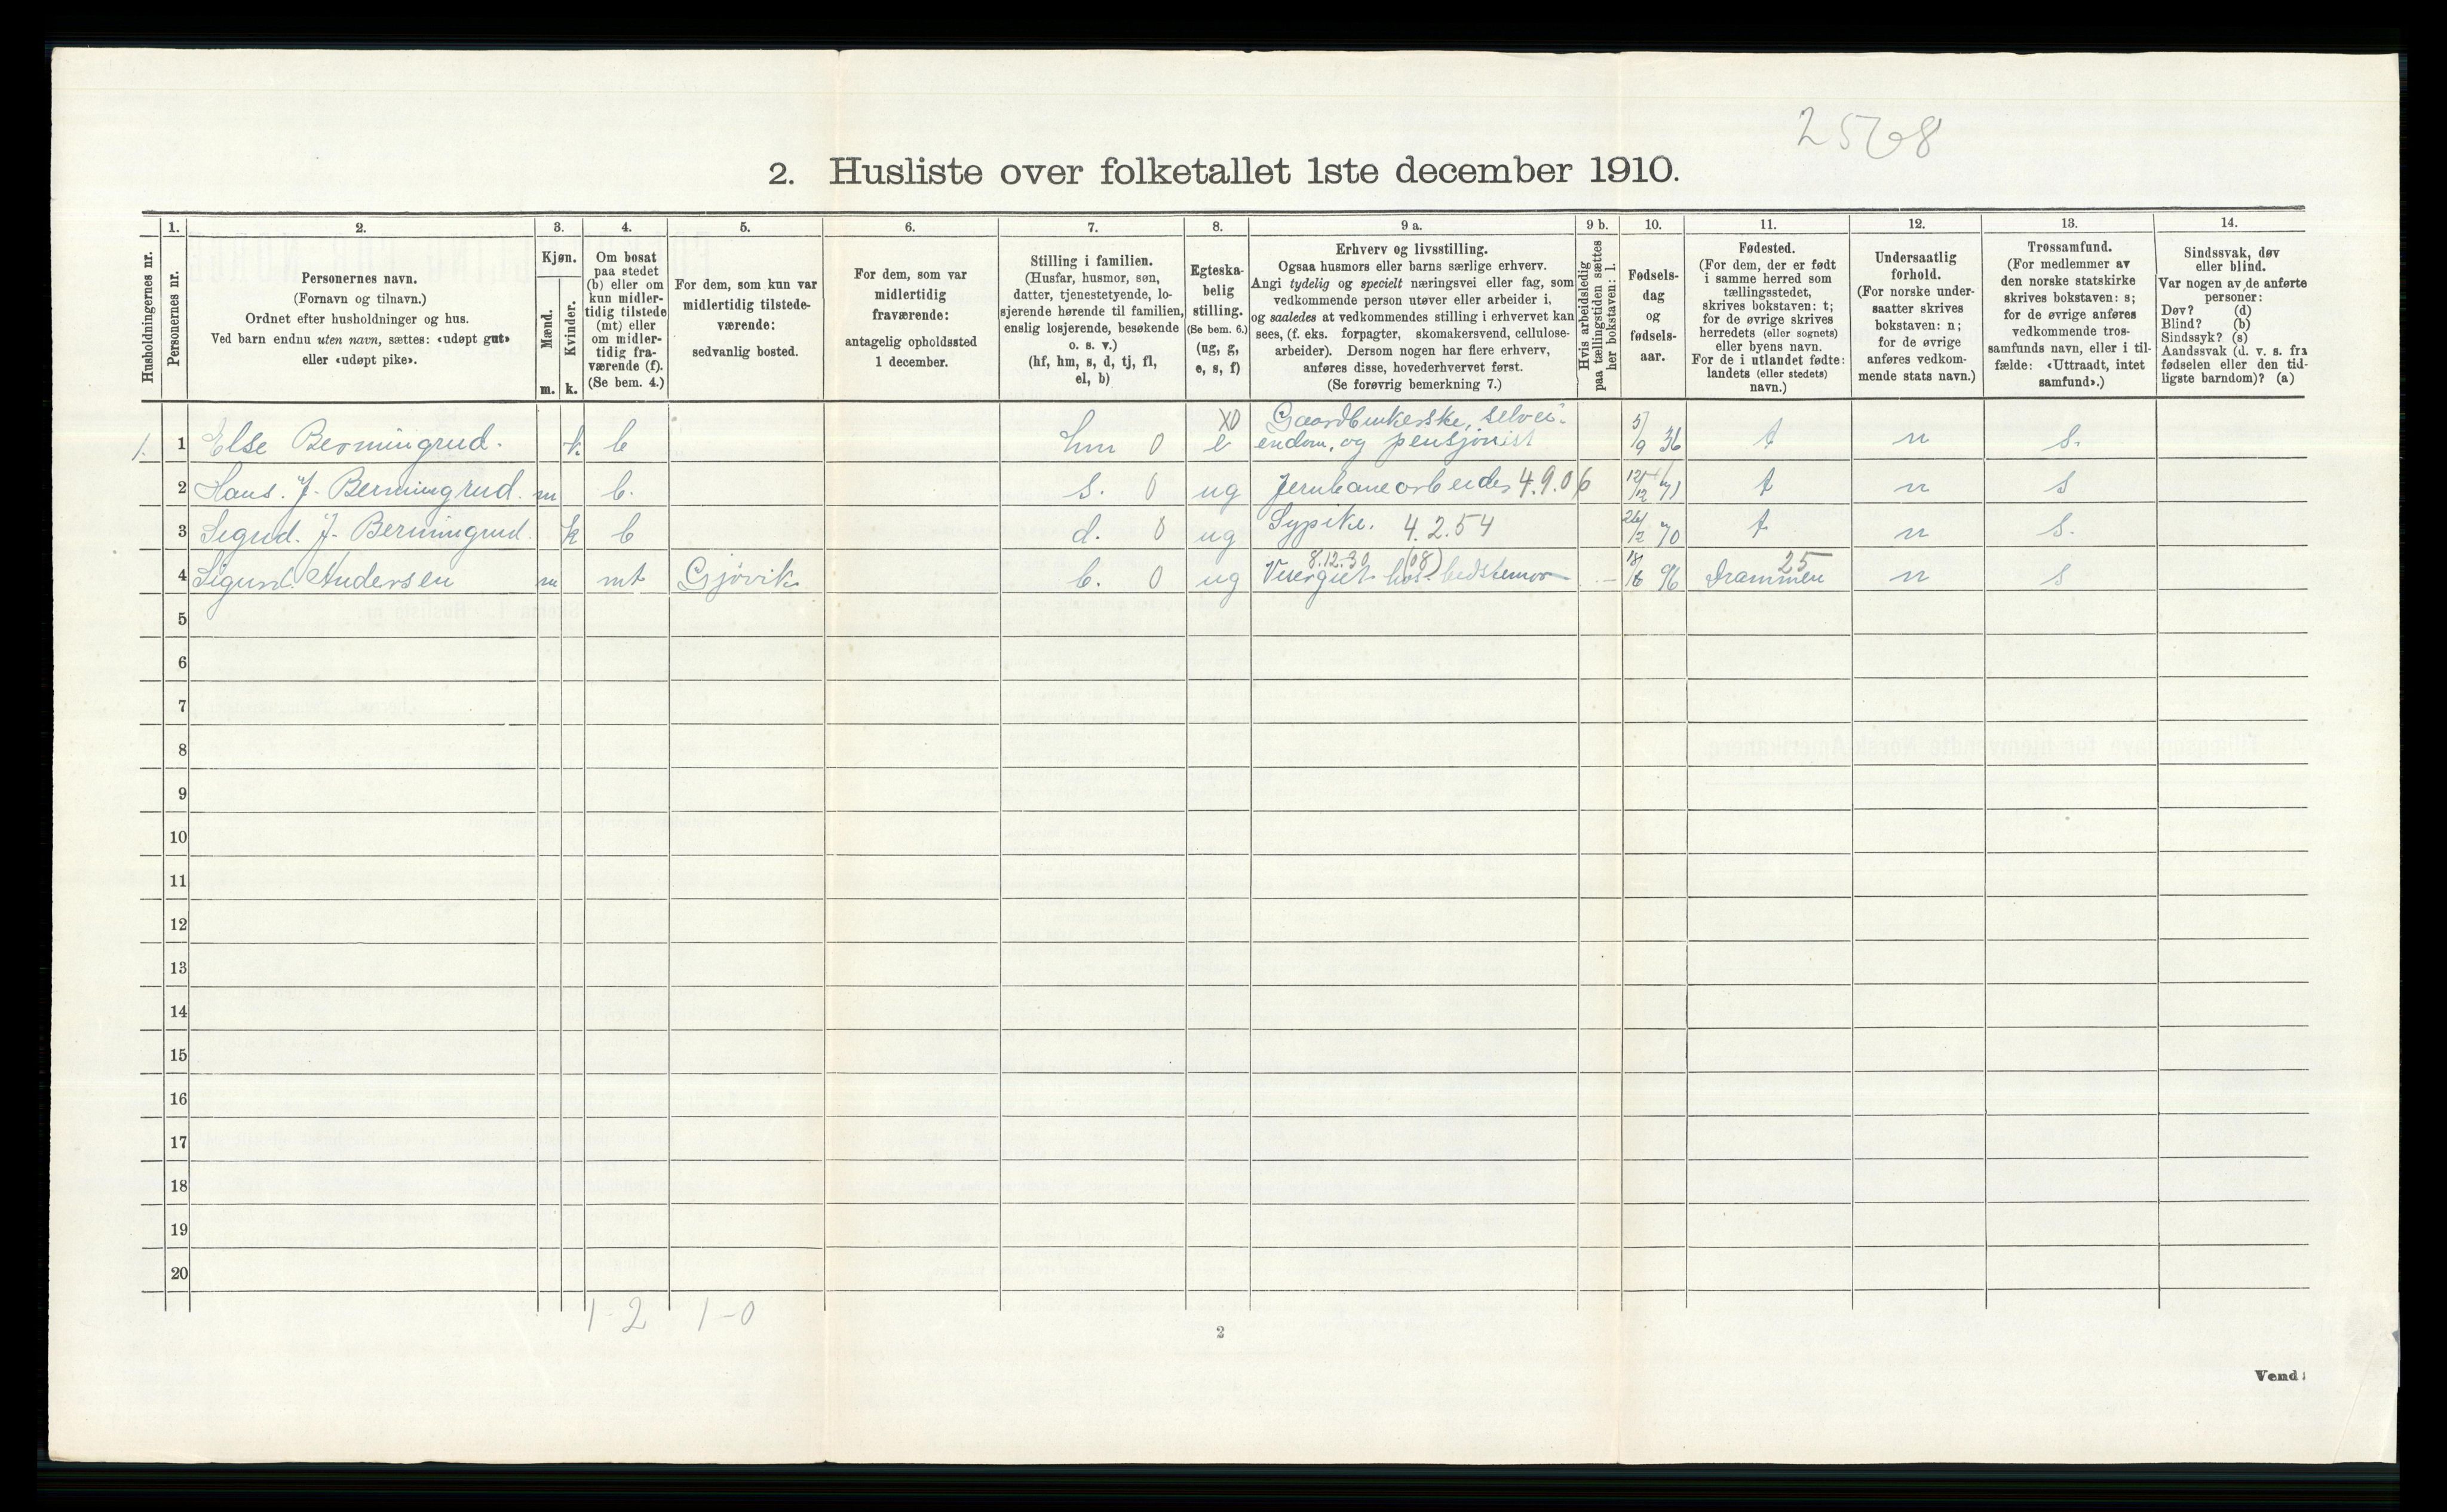 2568
2. Husliste over folketallet 1ste december 1910.
Husholdningernes nr.
1.
Personernes nr.
2.
Personernes navn.
(Fornavn og tilnavn.)
Ordnet efter husholdninger og hus.
Ved barn endnu uten navn, sættes: «udøpt gut»
eller «udøpt pike».
3.
Kjøn.
Mænd.
Kvinder.
m. k.
4.
Om bosat
paa stedet
(b) eller om
kun midler-
tidig tilstede
(mt) eller
om midler-
tidig fra-
værende (f).
(Se bem. 4.)
5.
For dem, som kun var
midlertidig tilstede-
værende:
sedvanlig bosted.
6.
For dem, som var
midlertidig
fraværende:
antagelig opholdssted
1 december.
7.
Stilling i familien.
(Husfar, husmor, søn,
datter, tjenestetyende, lo-
sjerende hørende til familien,
enslig losjerende, besøkende
o. s. v.)
(hf, hm, s, d, tj, fl,
el, b)
8.
Egteska-
belig
stilling.
(Se bem. 6.)
(ug, g,
e, s, f)
9 a.
Erhverv og livsstilling.
Ogsaa husmors eller barns særlige erhverv.
Angi tydelig og specielt næringsvei eller fag, som
vedkommende person utøver eller arbeider i,
og saaledes at vedkommendes stilling i erhvervet kan
sees, (f. eks. forpagter, skomakersvend, cellulose-
arbeider). Dersom nogen har flere erhverv,
anføres disse, hovederhvervet først.
(Se forøvrig bemerkning 7.)
9 b.
Hvis arbeidsledig
paa tællingstiden sættes
her bokstaven: l.
10.
Fødsels-
dag
og
fødsels-
aar.
11.
Fødested.
(For dem, der er født
i samme herred som
tællingsstedet,
skrives bokstaven: t;
for de øvrige skrives
herredets (eller sognets)
eller byens navn.
For de i utlandet fødte:
landets (eller stedets)
navn.)
12.
Undersaatlig
forhold.
(For norske under-
saatter skrives
bokstaven: n;
for de øvrige
anføres vedkom-
mende stats navn.)
13.
Trossamfund.
(For medlemmer av
den norske statskirke
skrives bokstaven: s;
for de øvrige anføres
vedkommende tros-
samfunds navn, eller i til-
fælde: «Uttraadt, intet
samfund».)
14.
Sindssvak, døv
eller blind.
Var nogen av de anførte
personer:
Døv? (d)
Blind? (b)
Sindssyk? (s)
Aandssvak (d. v. s. fra
fødselen eller den tid-
ligste barndom)? (a)
X0 Gaardbrukerske, selvei-
1. 1 Else Bermingrud. k. b hm 0 e endom, og pensjonist 5/9 36 t n s.
2 Hans. J. Bermingrud. m b. s. 0 ug Jernbanearbeider 4.9.06 12/12 71 t n s
3 Sigrid. J. Bermingrud. k b d. 0 ug Sypike. 4.2.54 26/2 70 t n s.
8.12.30 (08) 25
4 Sigurd. Andersen m mt Gjøvik b. 0 ug Visergut hos bedstemor - 18/6 96 Drammen n s
5
6
7
8
9
10
11
12
13
14
15
16
17
18
19
20
1-2 1-0
2
Vend!